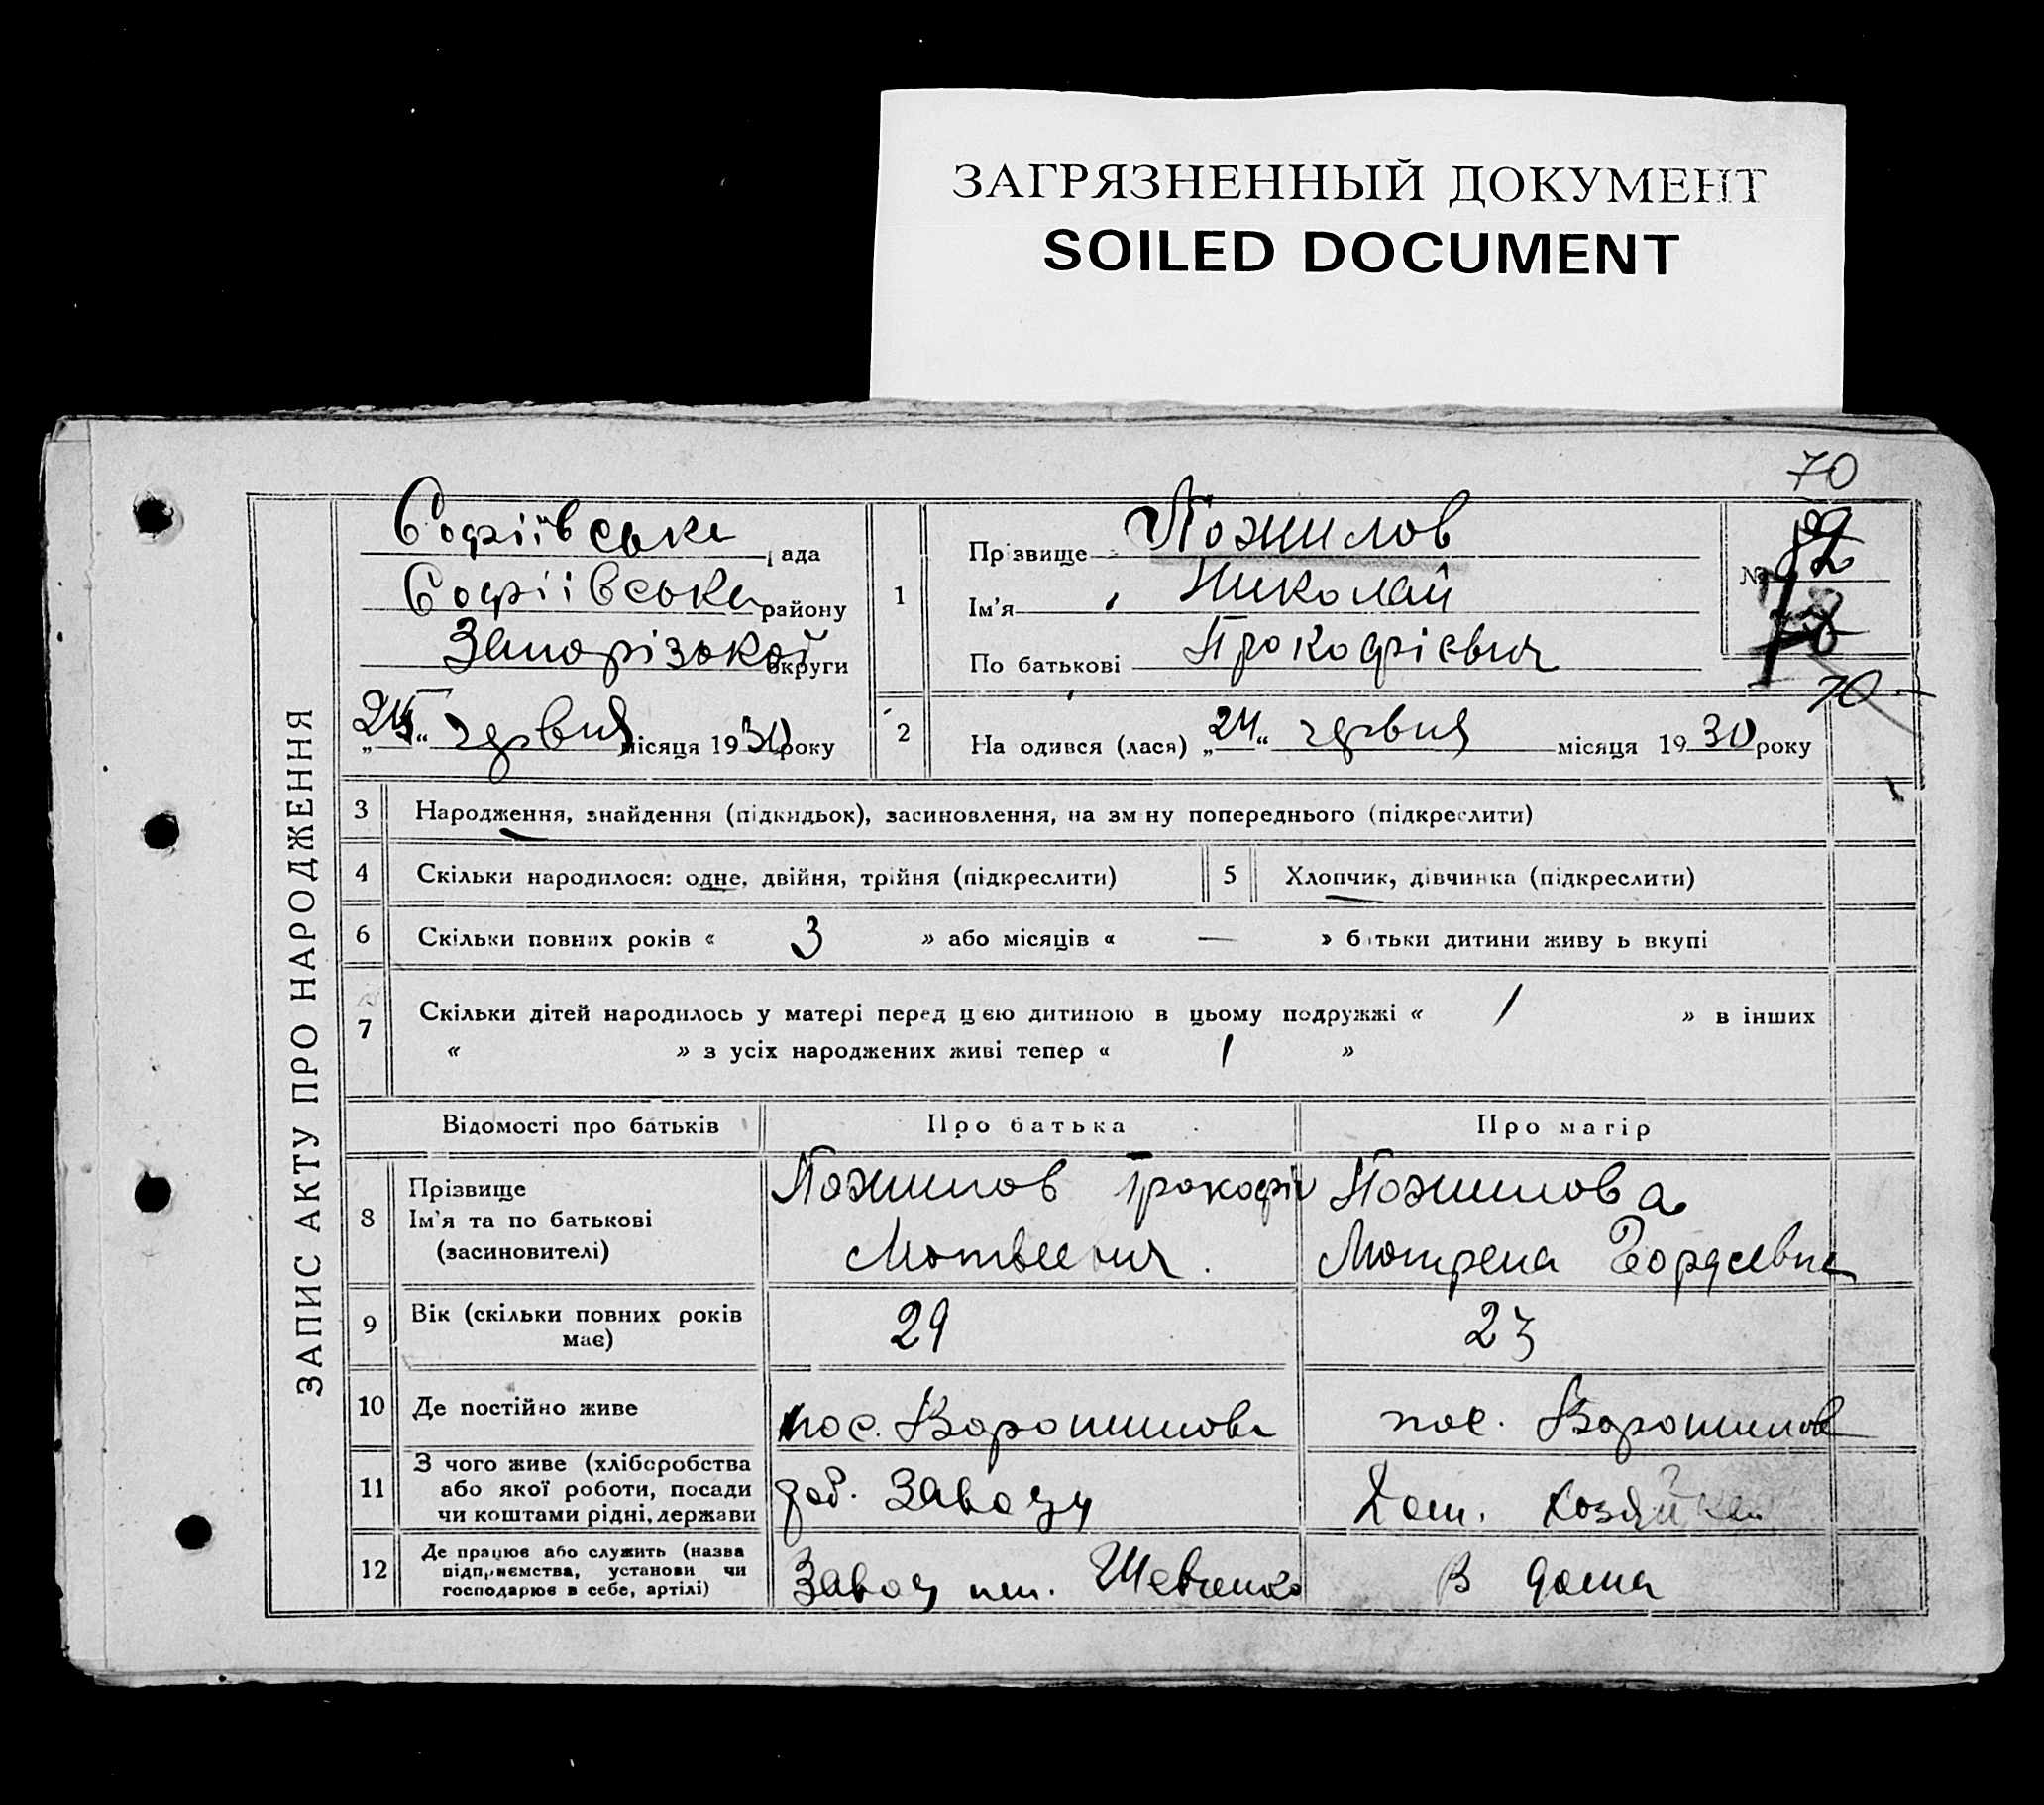 ЗАГРЯЗНЕННЫЙ ДОКУМЕНТ
SOILED DOCUMENT
70
ЗАПИС АКТУ ПРО НАРОДЖЕННЯ
Софіївська рада
Софіївська району
Запорізької округи
„24“ червня місяця 1930 року
1
Прізвище Пожилов
Ім'я Николай
По батькові Прокофієвич
№
70
2
На одився (лася) „24“ червня місяця 1930 року
3 Народження, знайдення (підкидьок), засиновлення, на зм ну попереднього (підкреслити)
4 Скільки народилося: одне, двійня, трійня (підкреслити)
5 Хлопчик, дівчинка (підкреслити)
6 Скільки повних років « 3 » або місяців « — » батьки дитини живу ь вкупі
7 Скільки дітей народилось у матері перед цією дитиною в цьому подружжі « 1 » в інших
« » з усіх народжених живі тепер « 1 »
Відомості про батьків Про батька Про матір
8 Прізвище
Ім'я та по батькові
(засиновителі)
Пожилов Прокофій
Мотвеевич.
Пожилова
Мотрена Гордеевна
9 Вік (скільки повних років
має)
29 23
10 Де постійно живе пос. Ворошилова пос. Ворошилов
11 З чого живе (хліборобства
або якої роботи, посади
чи коштами рідні, держави
роб. Заводу Дом. хозяйка
12 Де працює або служить (назва
підприємства, установи чи
господарює в себе, артілі)
Завод им. Шевченко В дома